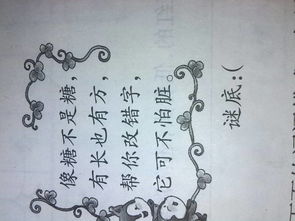 像糖不是糖，
有长也有方，
帮你改错字，
它可不怕脏。
谜底：(